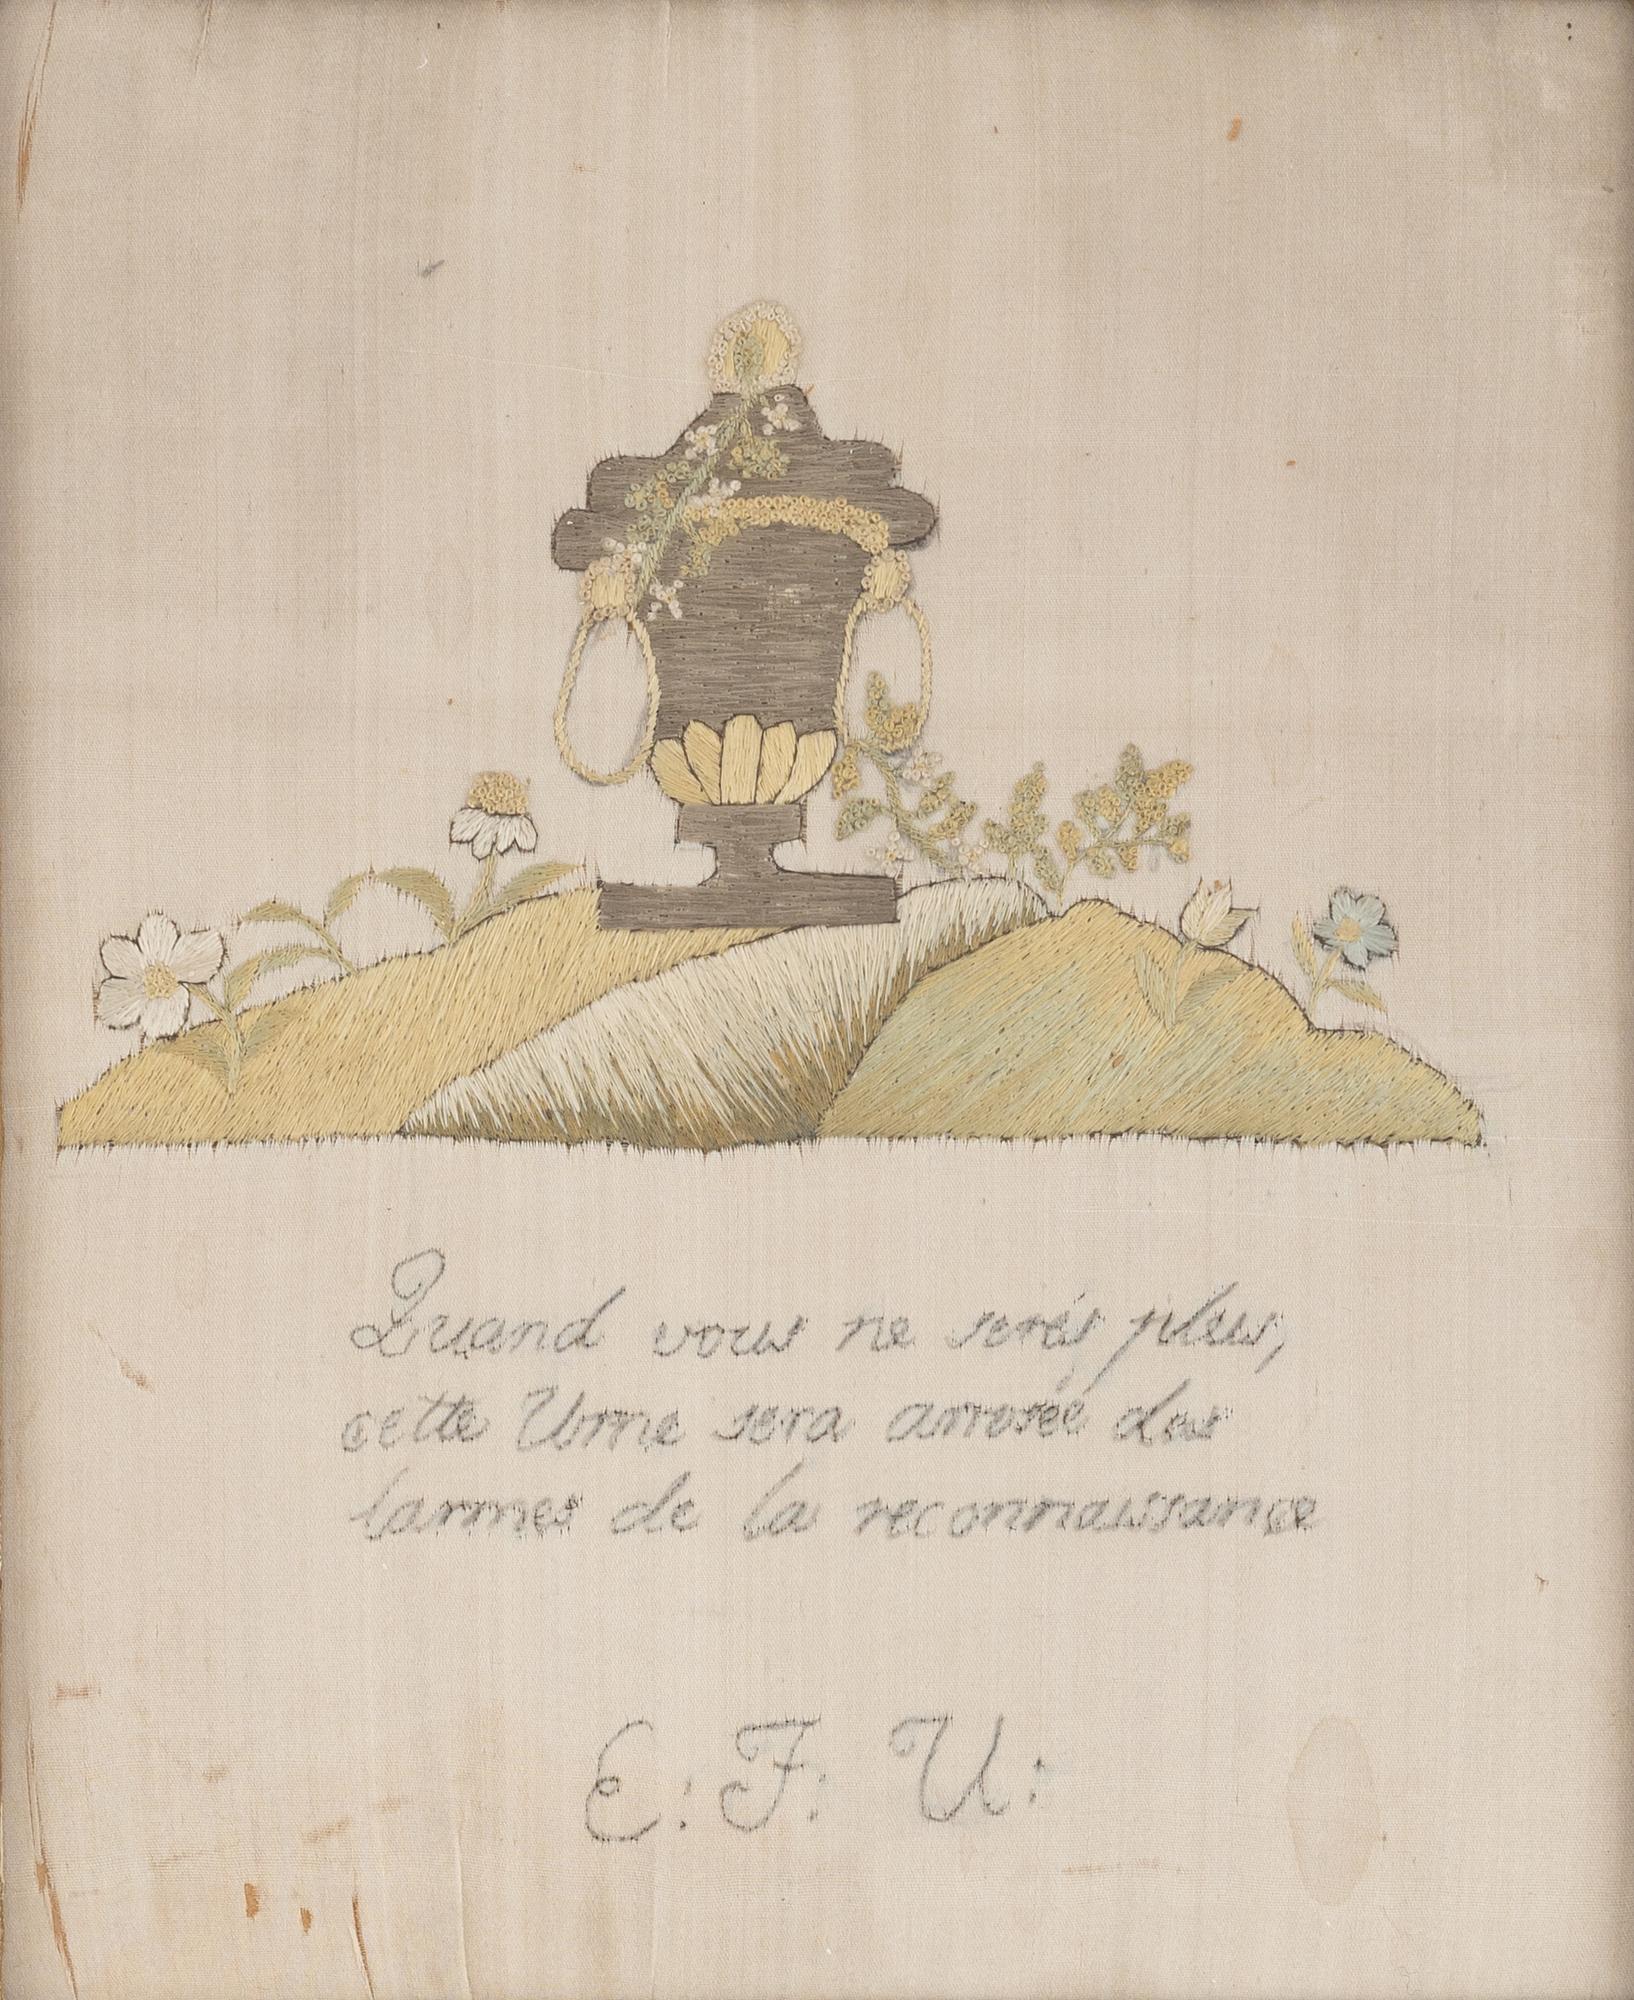 Quand vous ne serés plus,
cette Urne sera arrosée des
larmes de la reconnaissance
E: F: U: